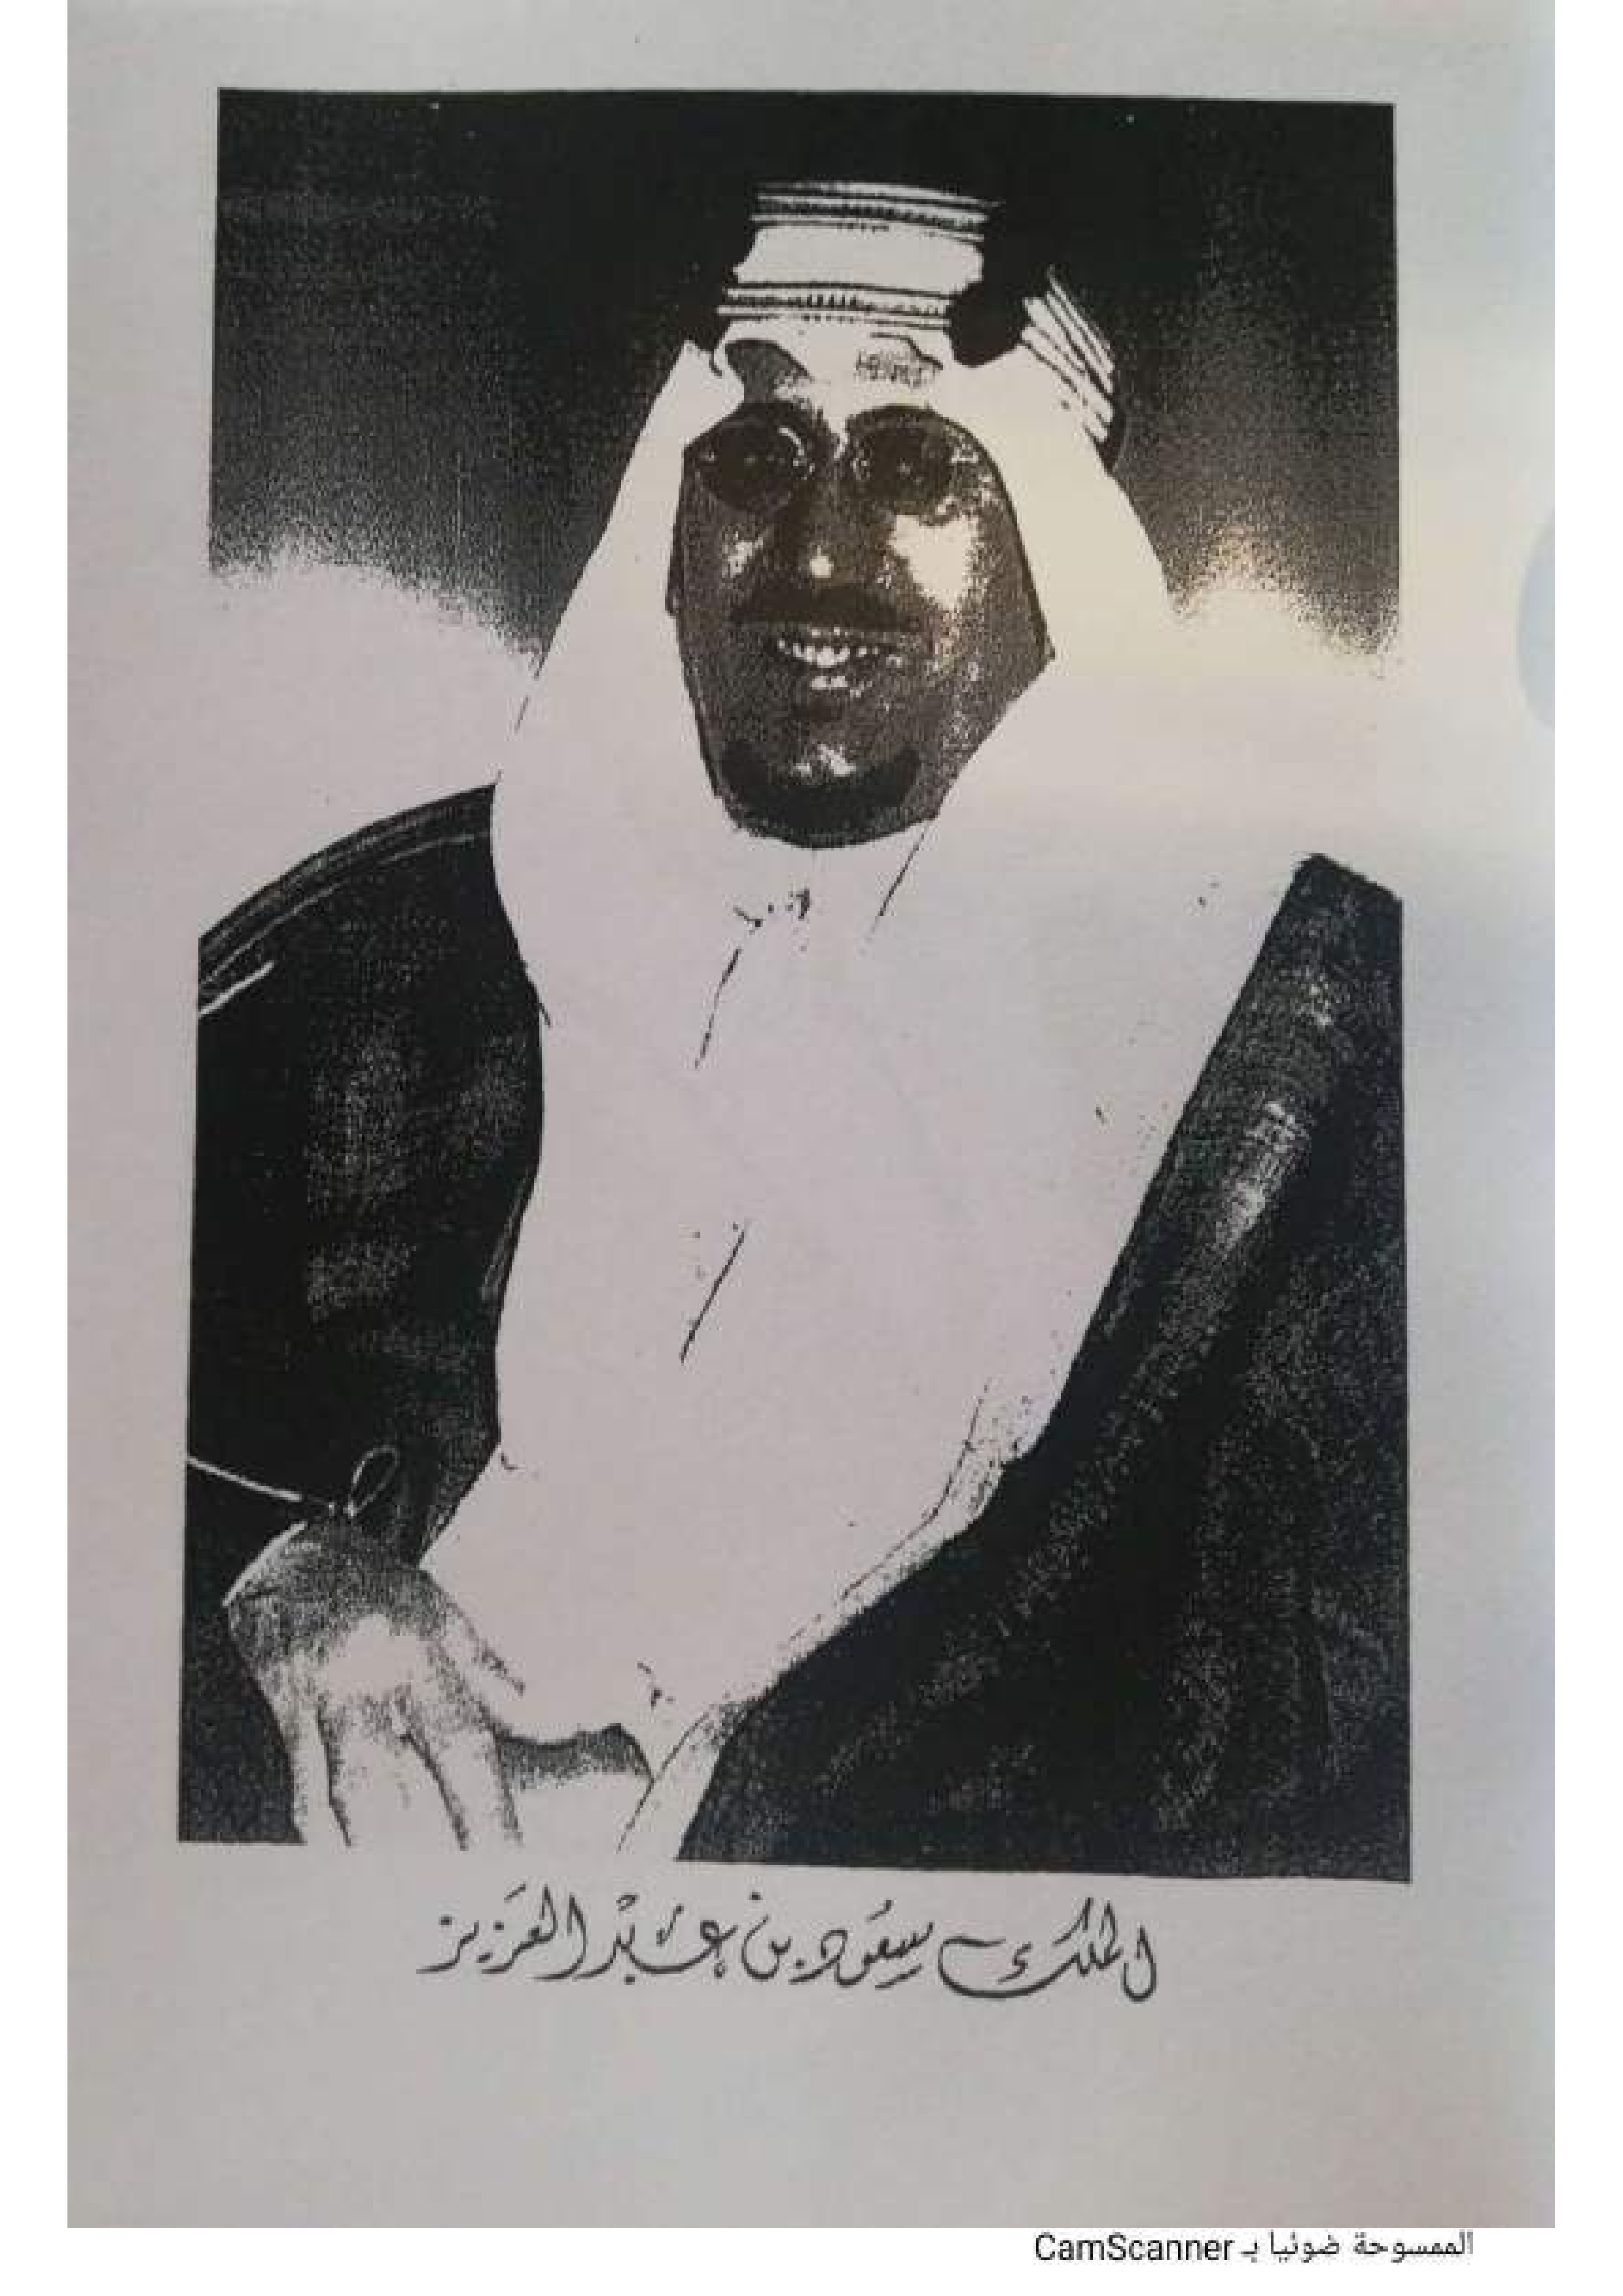 الملك سعود بن عبد العزيز
الممسوحة ضوئيا بـ CamScanner